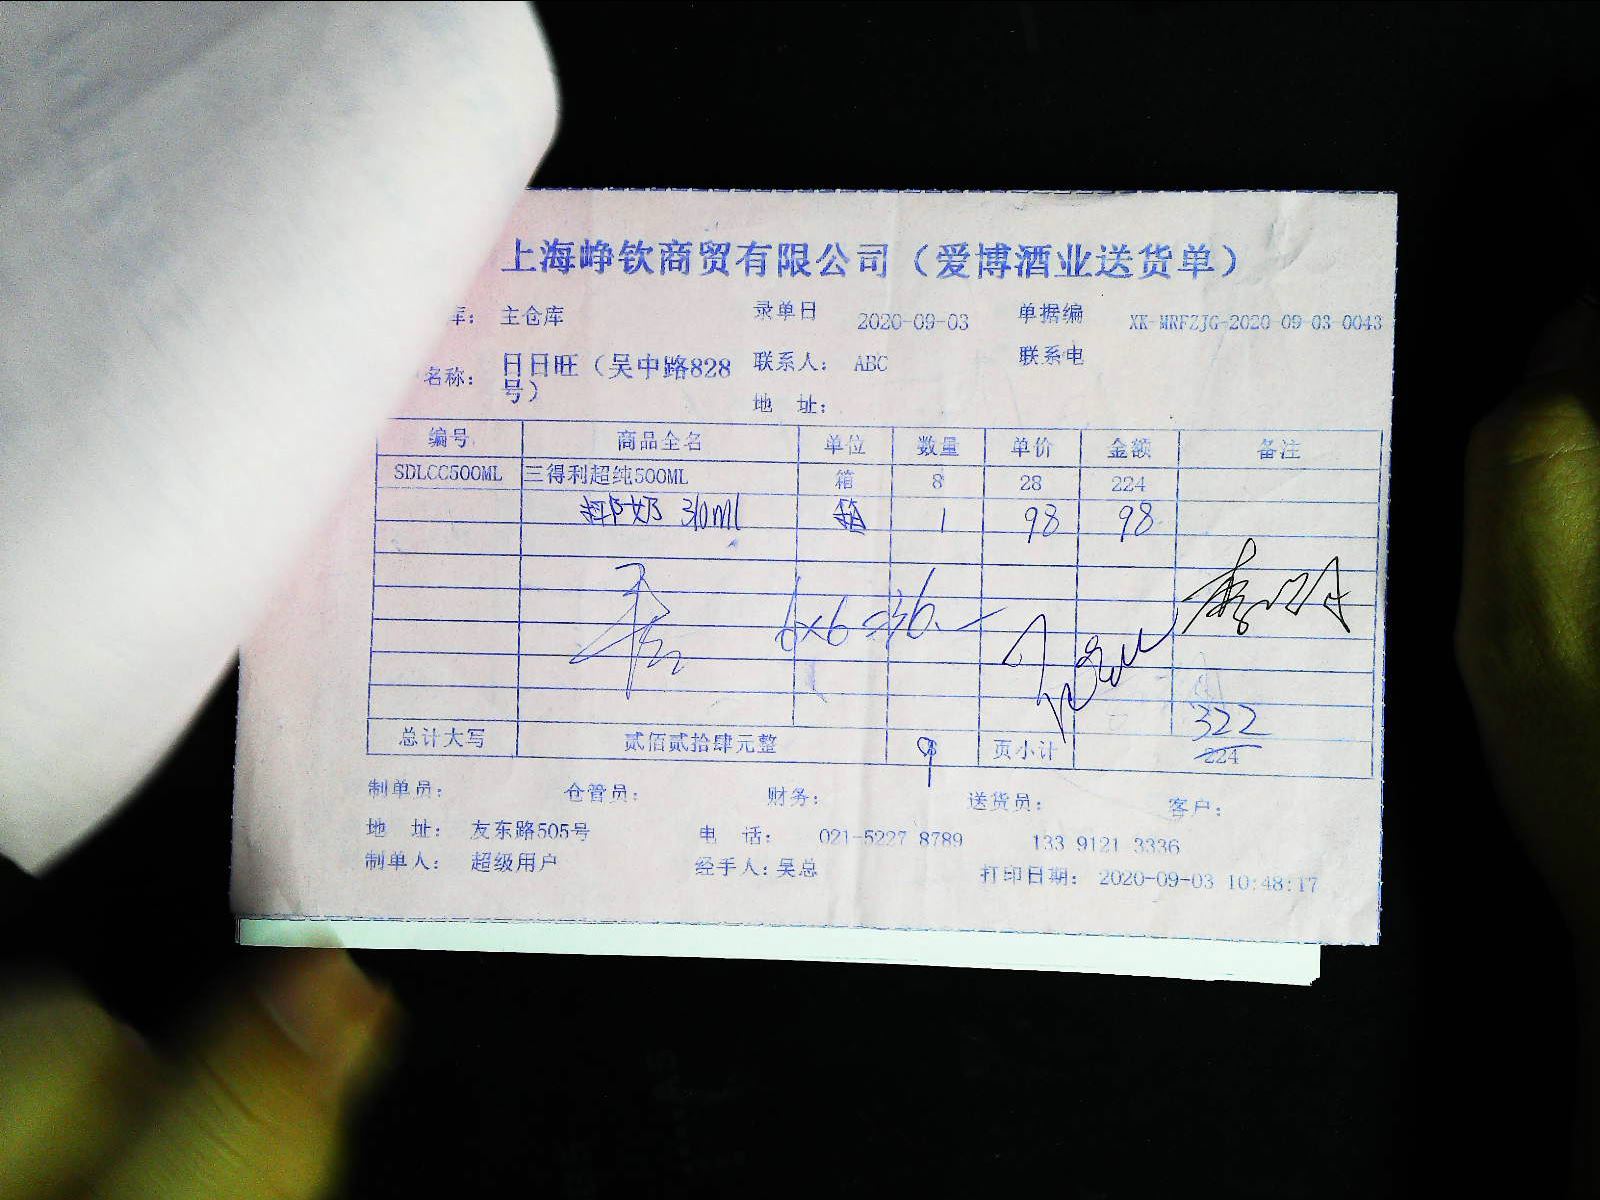 上海峥钦商贸有限公司（爱博酒业送货单）
库： 主仓库 录单日 2020-09-03 单据编 XK-MRFZJG-2020-09-03-0043
名称： 日日旺（吴中路828号） 联系人： ABC 联系电
地 址：
编号 商品全名 单位 数量 单价 金额 备注
SDLCC500ML 三得利超纯500ML 箱 8 28 224
310ml 箱 1 98 98
6×6=36
322
总计大写 贰佰贰拾肆元整 9 页小计 224
制单员： 仓管员： 财务： 送货员： 客户：
地 址： 友东路505号 电 话： 021-5227 8789 133 9121 3336
制单人： 超级用户 经手人：吴总 打印日期： 2020-09-03 10:48:17